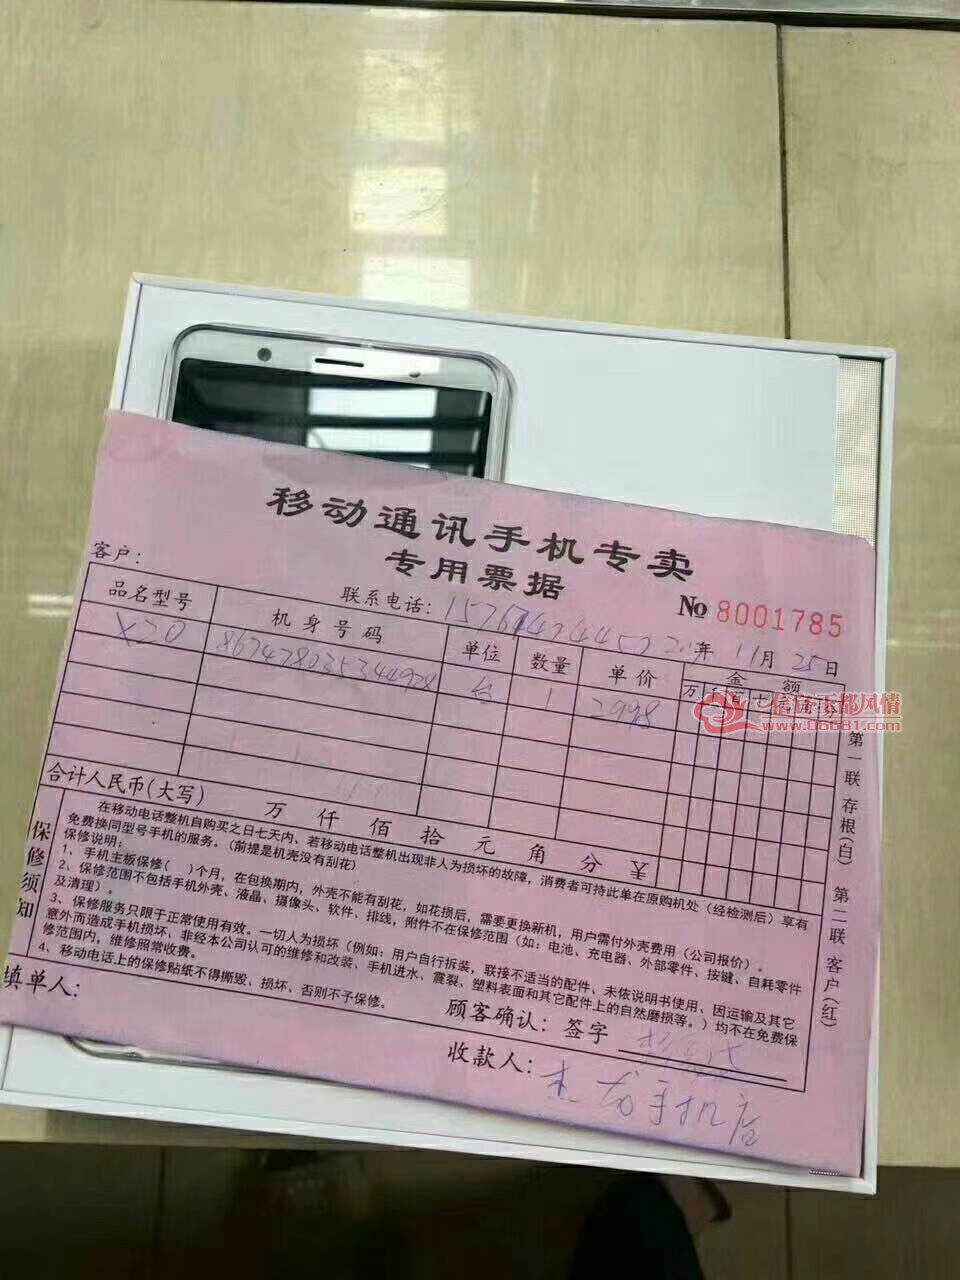 移动通讯手机专卖
专用票据
客户:
联系电话:
№ 8001785
年 11月 25日
品名型号 机身号码 单位 数量 单价 金额
万 千 百 十 元 角 分
X20 台 1 2998
信宜玉都风情
www.06681.com
合计人民币(大写) 万 仟 佰 拾 元 角 分 ¥
保修须知
在移动电话整机自购买之日七天内、若移动电话整机出现非人为损坏的故障，消费者可持此单在原购机处（经检测后）享有
免费换同型号手机的服务。(前提是机壳没有刮花)
保修说明：
1、手机主板保修( )个月，在包换期内，外壳不能有刮花，如花损后，需要更换新机，用户需付外壳费用（公司报价）。
2、保修范围不包括手机外壳、液晶、摄像头、软件、排线，附件不在保修范围（如：电池、充电器、外部零件、按键、自耗零件
及清理）。
3、保修服务只限于正常使用有效。一切人为损坏（例如：用户自行拆装，联接不适当的配件、未依说明书使用、因运输及其它
意外而造成手机损坏、非经本公司认可的维修和改装、手机进水、震裂、塑料表面和其它配件上的自然磨损等。）均不在免费保
修范围内，维修照常收费。
4、移动电话上的保修贴纸不得撕毁、损坏、否则不予保修。
第一联 存根(白) 第二联 客户(红)
填单人:
顾客确认: 签字
收款人: 手机店